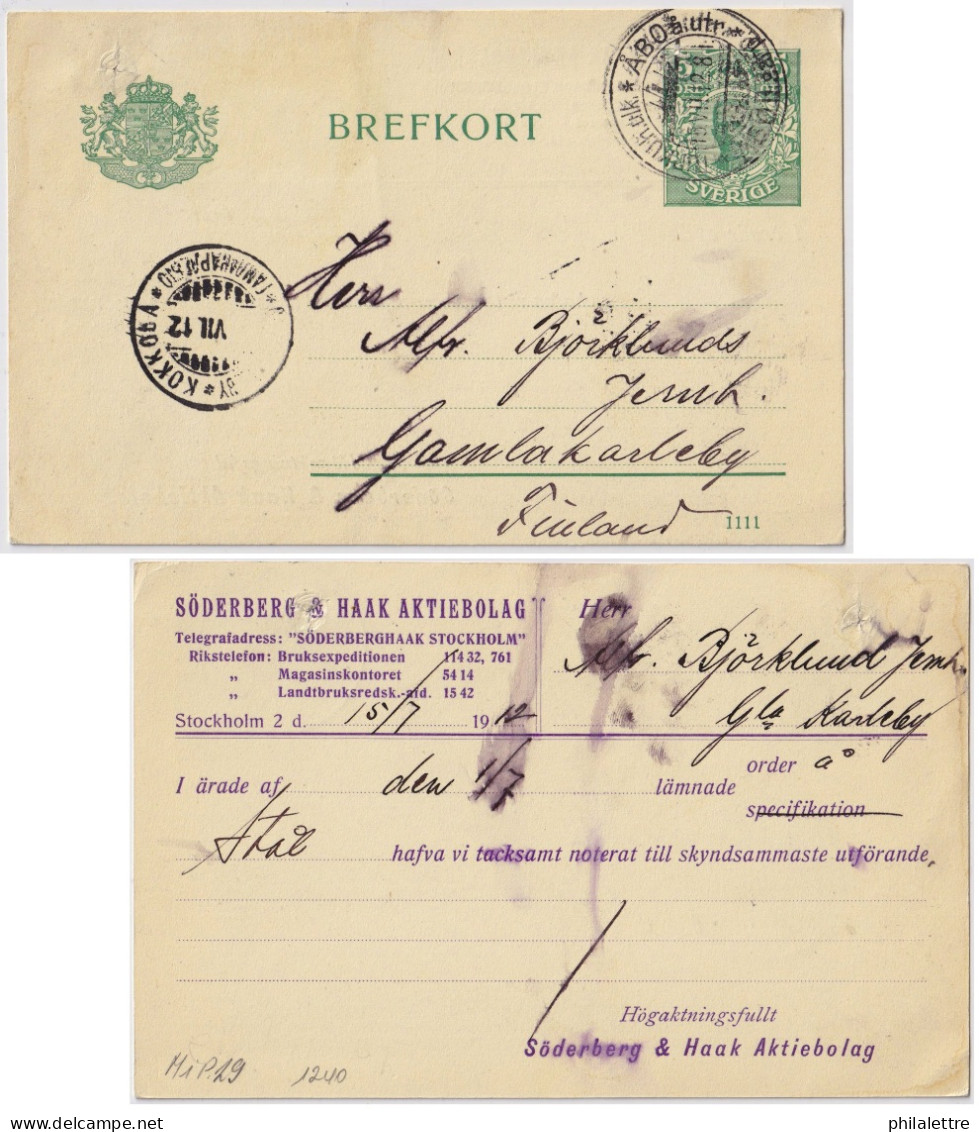 BREFKORT
ÅBO a. utr.
SVERIGE
KOKKOLA
VII. 12
Herr
Alfr. Björklunds
Jernh.
Gamlakarleby
Finland
1111
SÖDERBERG & HAAK AKTIEBOLAG
Telegrafadress: "SÖDERBERGHAAK STOCKHOLM"
Rikstelefon: Bruksexpeditionen 114 32, 761
„ Magasinskontoret 54 14
„ Landtbruksredsk.-afd. 15 42
Stockholm 2 d. 15/7 1912
Herr
Alfr. Björklund Jernh.
Gla Karleby
I ärade af den 1/7 lämnade order å
specifikation
Stål hafva vi tacksamt noterat till skyndsammaste utförande,
Högaktningsfullt
Söderberg & Haak Aktiebolag
MiP.29 1240
philalettre